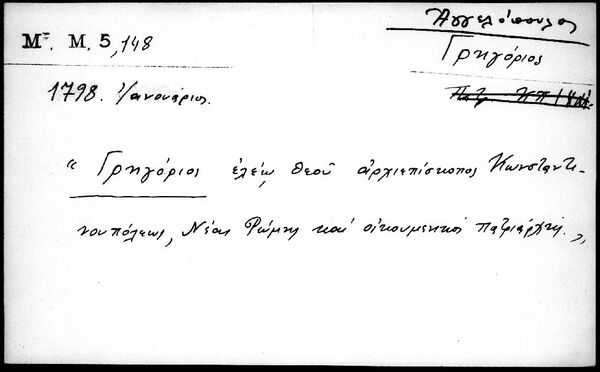 Ἀγγελόπουλος
Μ². Μ. 5,148
Γρηγόριος
1798. Ἰανουάριος.
« Γρηγόριος ἐλέῳ Θεοῦ ἀρχιεπίσκοπος Κωνσταντι-
νουπόλεως, Νέας Ῥώμης καὶ οἰκουμενικὸς Πατριάρχης. »